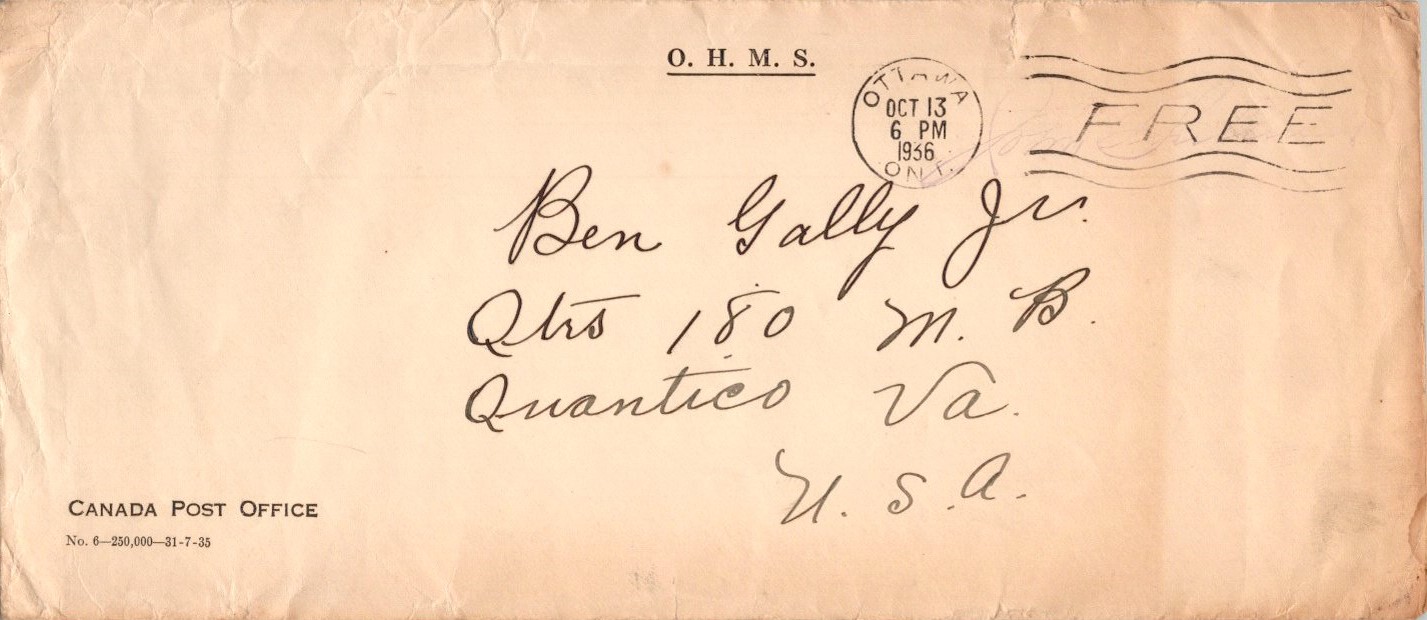 O. H. M. S.
OTTAWA
OCT 13
6 PM
1936
ONT.
FREE
Ben Gally Jr.
Qtrs 180 M. B.
Quantico Va.
U. S. A.
CANADA POST OFFICE
No. 6—250,000—31-7-35